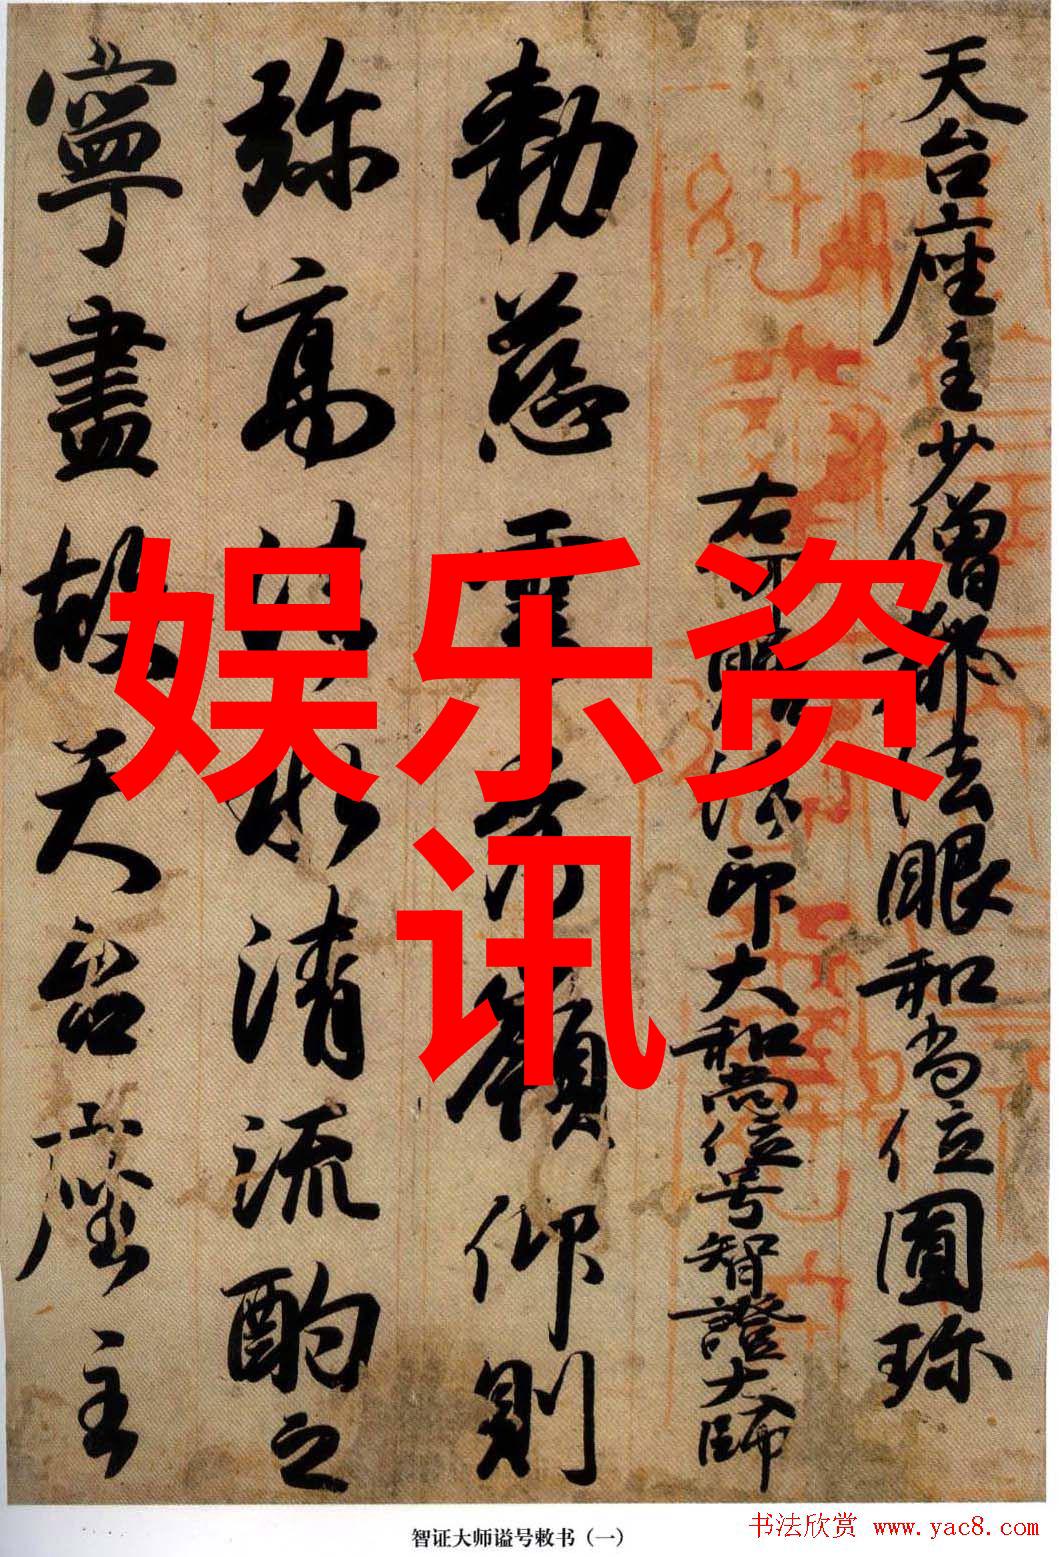 天台座主少僧都法眼和尚位圓珍
右可贈法印大和尚位号智證大師
勅慈雲秀嶺仰則
弥高法水清流酌之
寧盡故天台座主
娱乐资
讯
智证大师谥号敕书（一）
书法欣赏 www.yac8.com